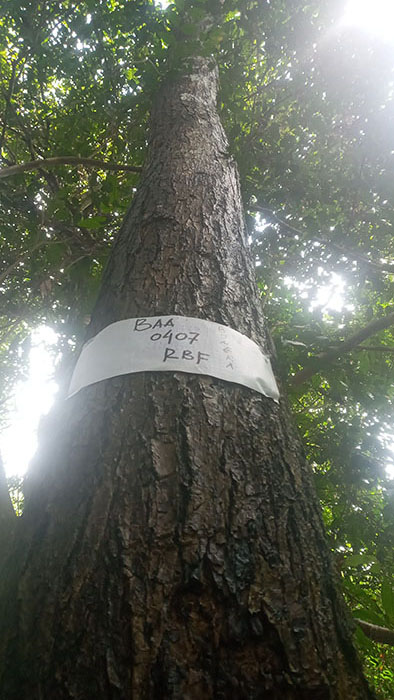 BAA
0407
RBF